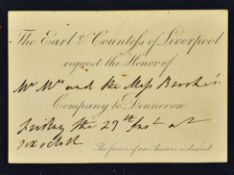 The Earl & Countess of Liverpool
request the Honor of
Mr Mrs and the Miss Brooke's
Company to Dinner on
Friday the 27th Inst at
six o'clock
The favor of an Answer is desired.